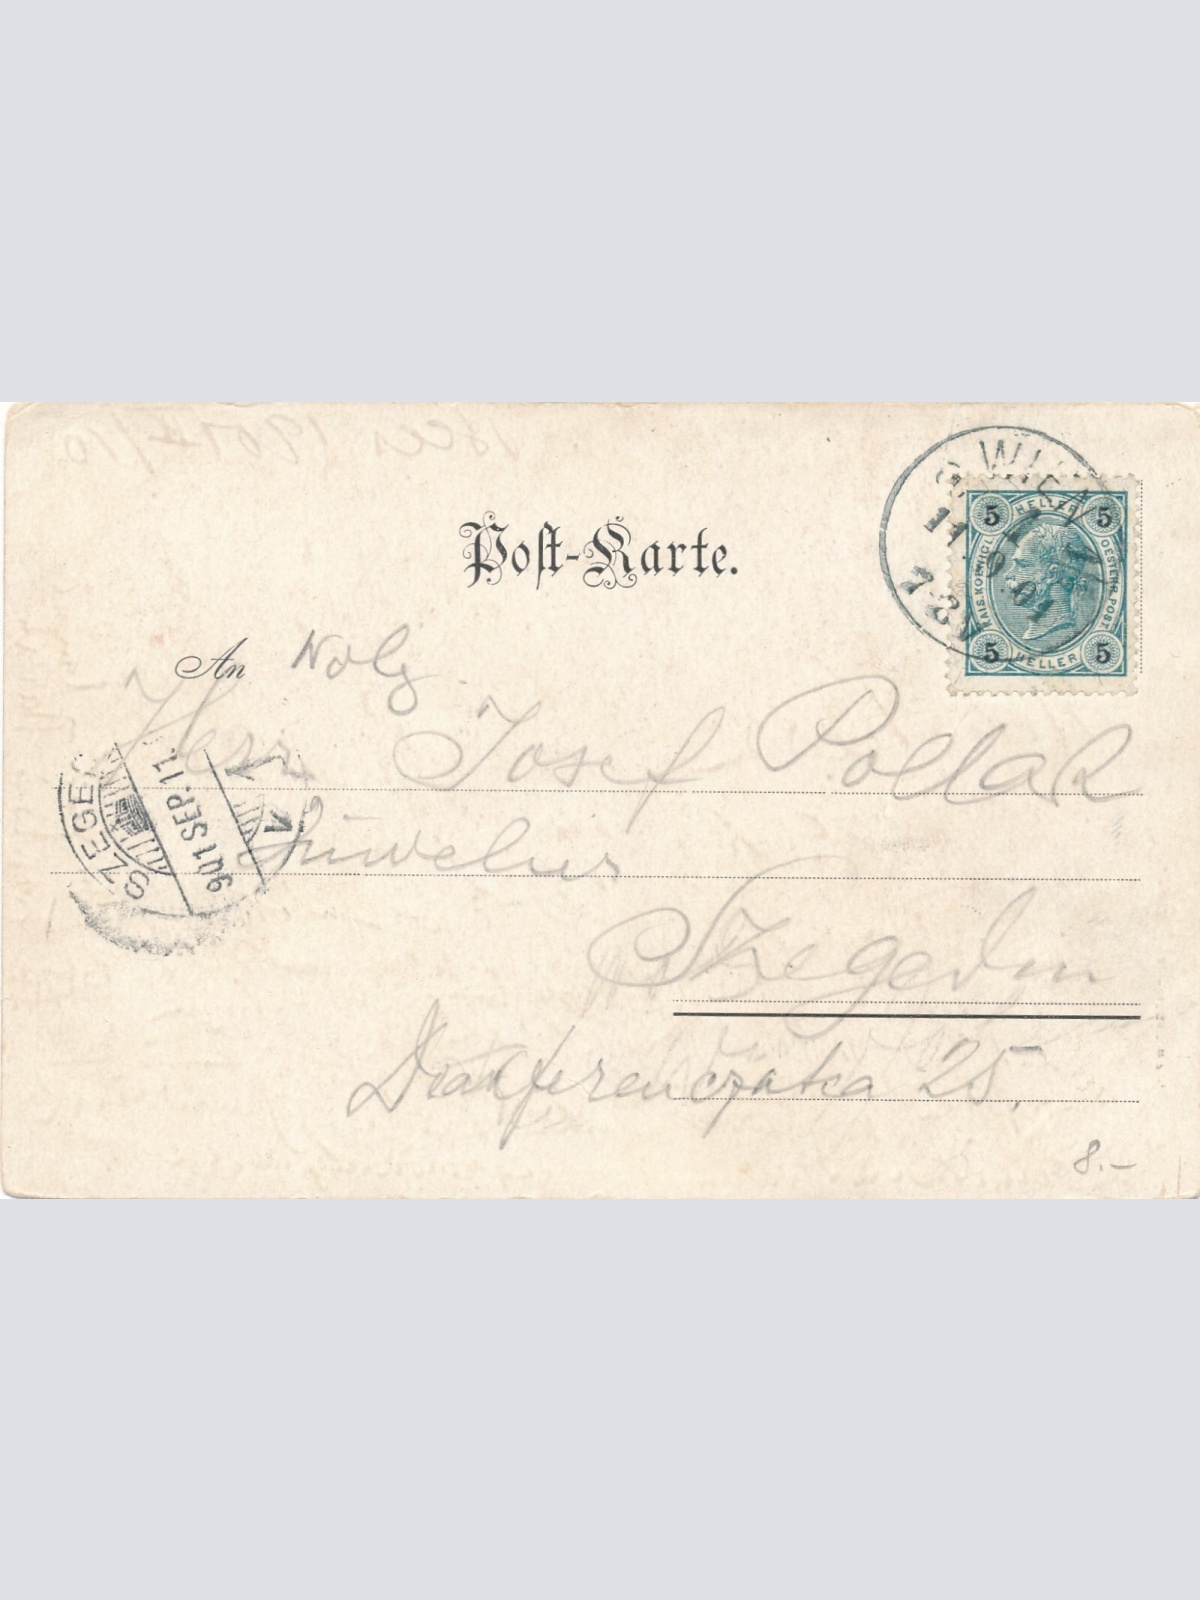 Post-Karte.
WIEN
11 9 01
5 HELLER 5
KAIS. KOENIGL. OESTERR. POST
5 HELLER 5
An
Herr Josef Pollak
SZEGED
901 SEP. 11
Juwelier
Szegedin
25.
8.–